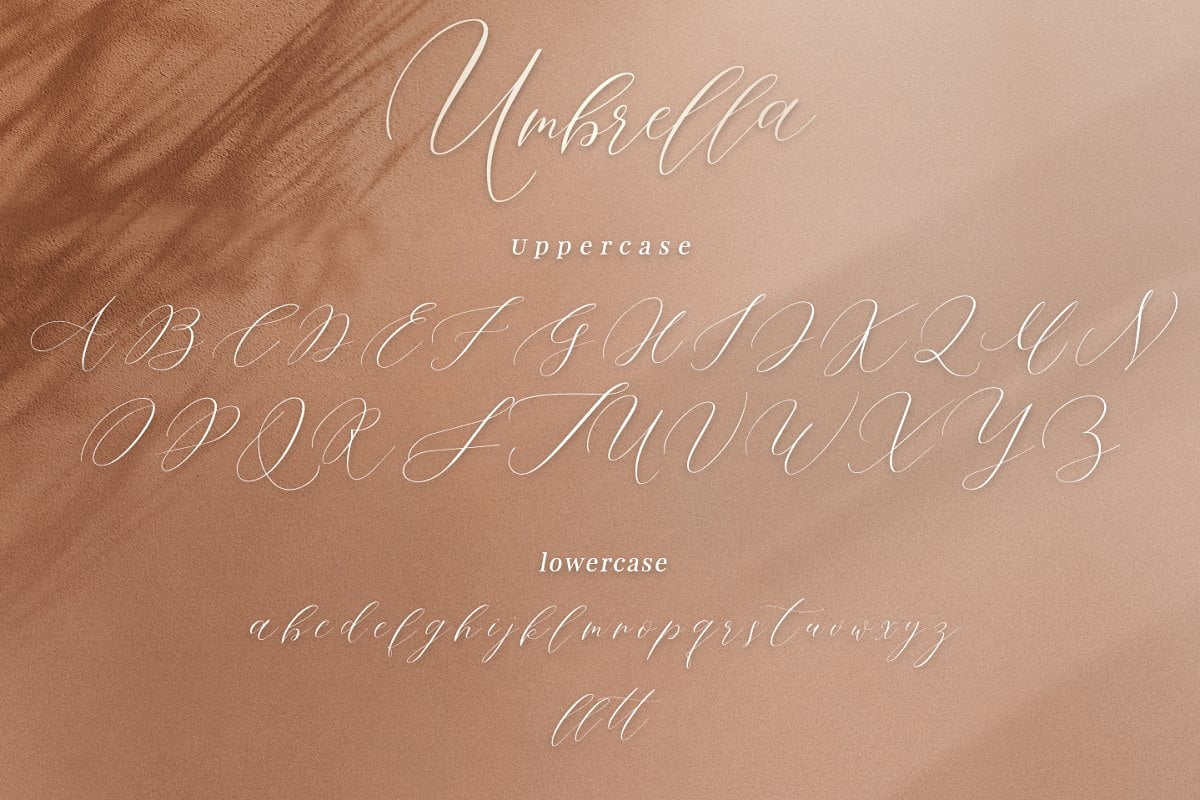 Umbrella
Uppercase
A B C D E F G H I J K L M N
O P Q R S T U V W X Y Z
lowercase
a b c d e f g h i j k l m n o p q r s t u v w x y z
ll tt